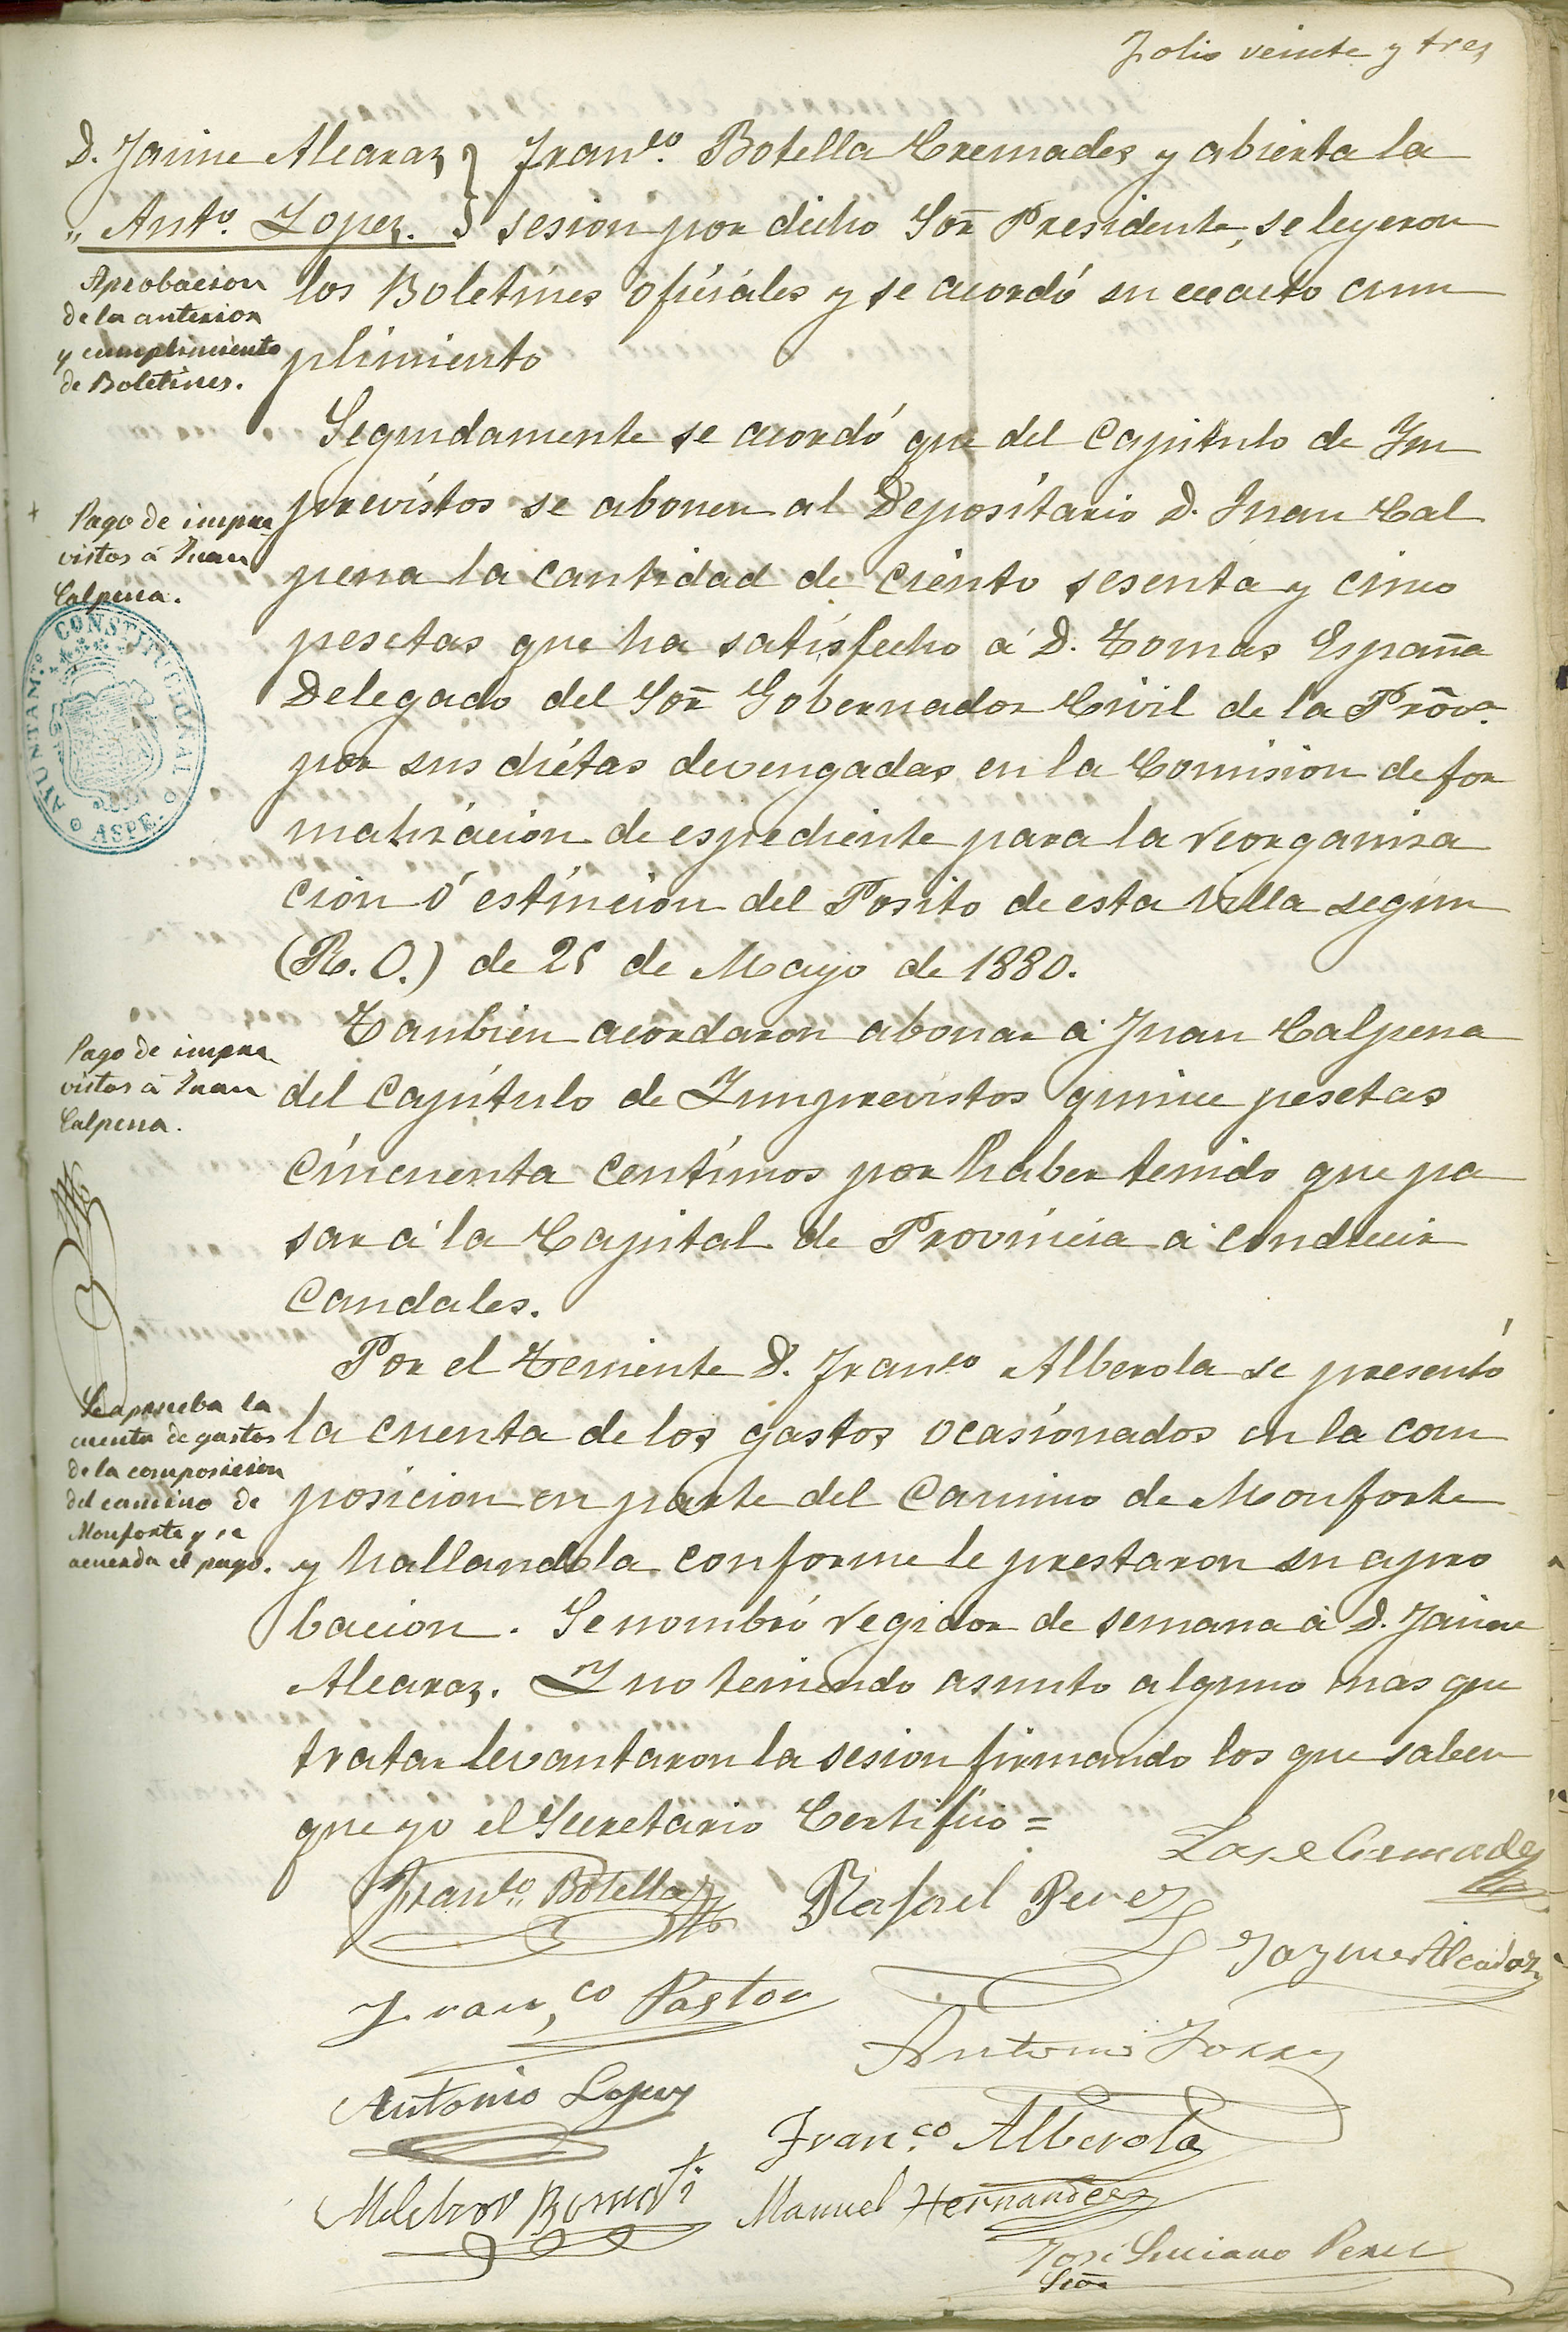 Folio veinte y tres
D. Jaime Alcaraz } Franco. Botella Cremades y abierta la
„ Anto. Lopez. } sesion por dicho Sor Presidente, se leyeron
Aprobacion
de la anterior
y cumplimiento
de Boletines.
los Boletines oficiales y se acordó su ecsacto cum
plimiento
Segundamente se acordó que del Capitulo de Im
previstos se abonen al Depositario D. Juan Cal
Pago de impre
vistos á Juan
Calpena.
pena la cantidad de ciento sesenta y cinco
AYUNTAMTO. CONSTITUCIONAL
ASPE.
pesetas que ha satisfecho á D. Tomas España
Delegado del Sor Gobernador Civil de la Prova.
por sus dietas devengadas en la Comision de for
malizacion de espediente para la reorganiza
cion ó estincion del Posito de esta Villa segun
(R. O.) de 25 de Mayo de 1880.
Tanbien acordaron abonar á Juan Calpena
Pago de impre
vistos á Juan
Calpena.
del Capítulo de Imprevistos quince pesetas
cincuenta centimos por haber tenido que pa
sar á la Capital de Provincia á conducir
Caudales.
Por el Teniente D. Franco Alberola se presentó
Se aprueba la
cuenta de gastos
de la composicion
del camino de
Monforte y se
acuerda el pago.
la cuenta de los gastos ocasionados en la com
posicion en parte del Camino de Monforte
y hallandola conforme le prestaron su apro
bacion. Se nombró regidor de semana á D. Jaime
Alcaraz. Y no teniendo asunto alguno mas que
tratar levantaron la sesion firmando los que saben
que yo el Secretario Certifico =
Jose Cremades
Franco. Botella
Rafael Perez
Jayme Alcaraz
Franco Pastor
Antonio Torres
Antonio Lopez
Franco. Alberola
Melchor
Manuel Hernandez
José Luciano Perez
Srio